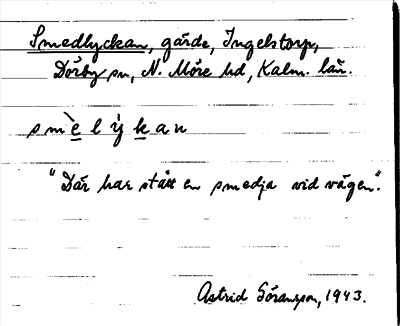 Smedlyckan, gärde, Ingelstorp,
Dörby sn, N. Möre hd, Kalm. län.
smèlỳkan
"Där har stått en smedja vid vägen".
Astrid Göransson, 1943.